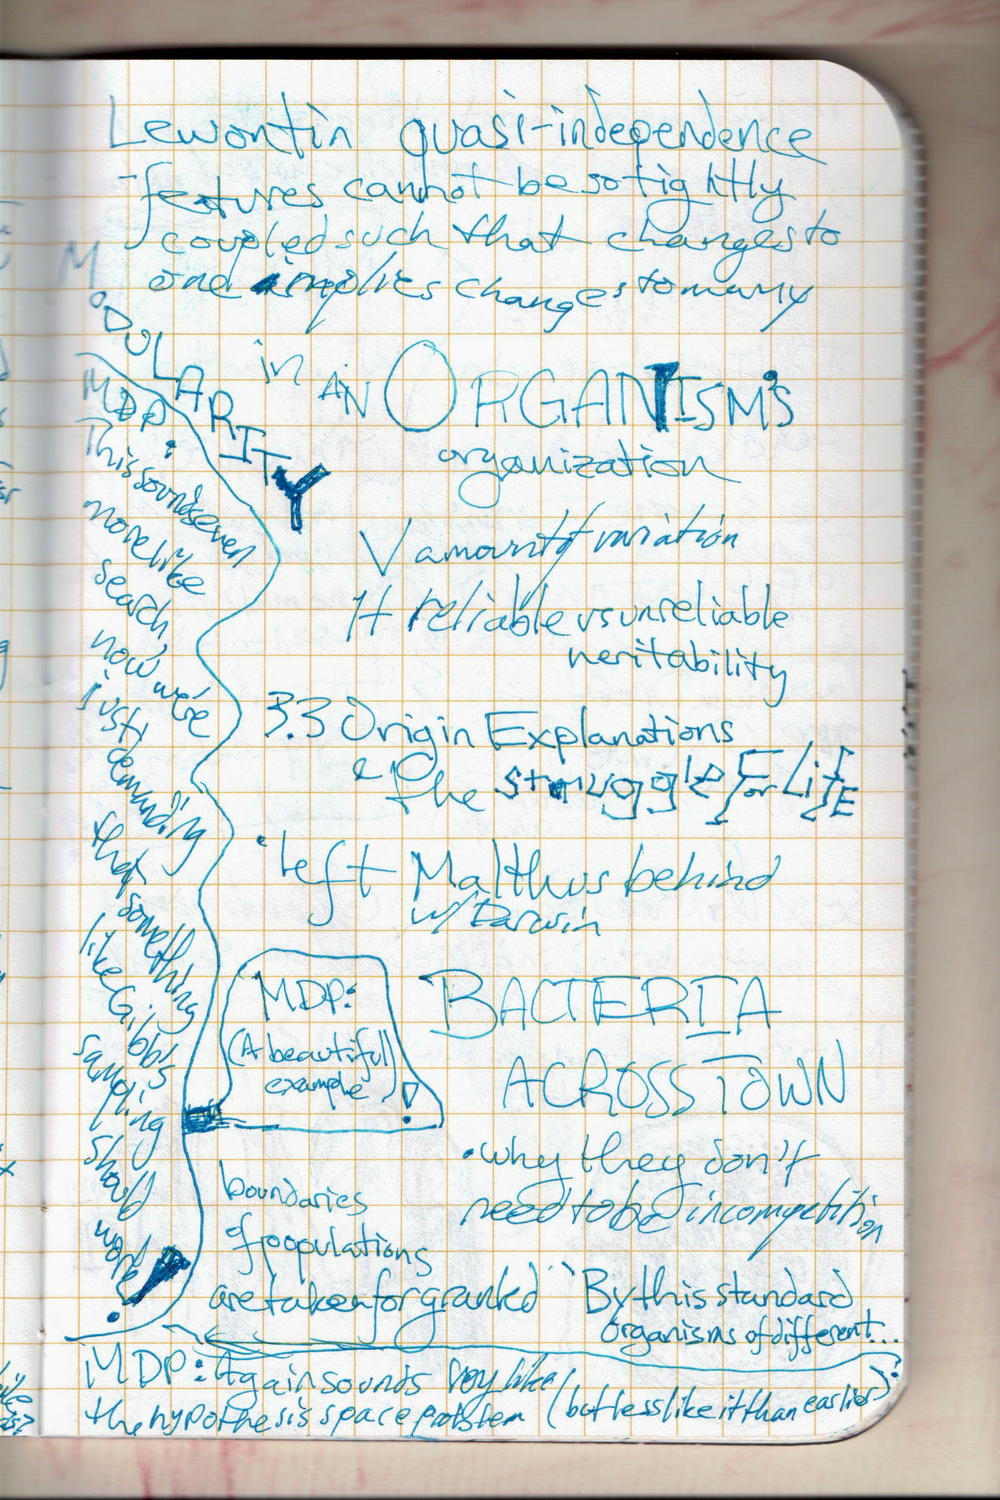 Lewontin quasi-independence
- features cannot be so tightly
coupled such that changes to
one implies changes to many
MODULARITY
in AN ORGANISM'S
organization
V amount of variation
H reliable vs unreliable
heritability
MDP:
This sounds even
more like
search,
now we're
just
demanding
that something
like Gibbs
sampling
should
work!
3.3 Origin Explanations
& the struggle For LiFE
• left Malthus behind
w/ Darwin
MDP:
(A beautiful
example)!
BACTERIA
ACROSS TOWN
• why they don't
need to be in competition
boundaries
of populations
are taken for granted
"By this standard
organisms of different...
MDP: Again sounds very like
the hypothesis space problem (but less like it than earlier).